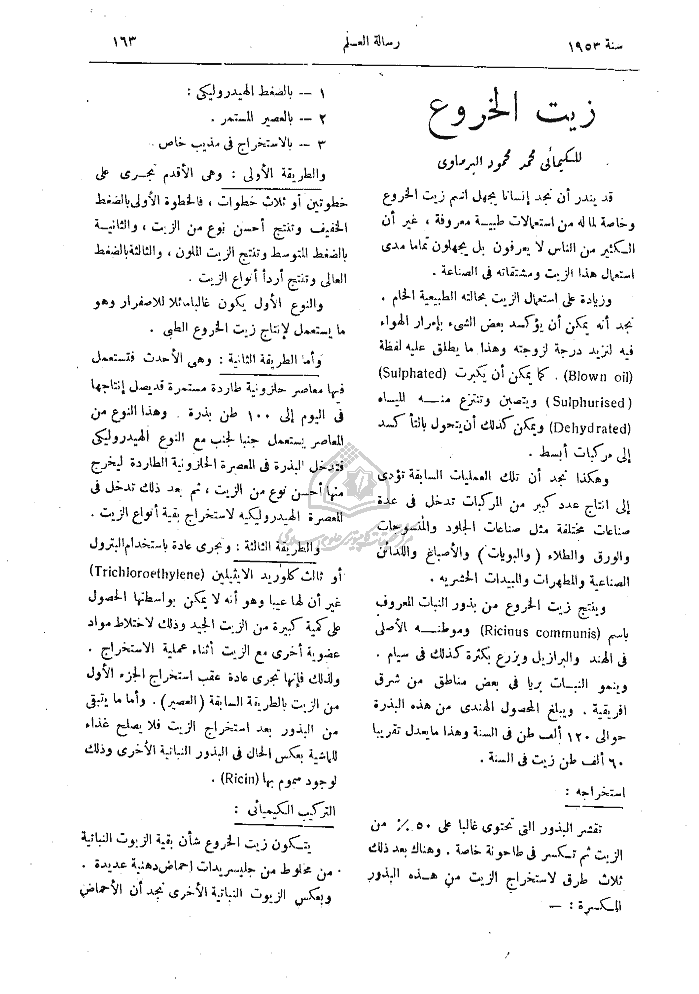 سنة ١٩٥٣
رسالة العلم
١٦٣
زيت الخروع
للكيمائى محمد محمود البرماوى
قد يندر أن نجد إنسانا يجهل اسم زيت الخروع
وخاصة لما له من استعمالات طبية معروفة ، غير أن
الكثير من الناس لا يعرفون بل يجهلون تماما مدى
استعمال هذا الزيت ومشتقاته فى الصناعة .
وزيادة على استعمال الزيت بحالته الطبيعية الخام .
نجد أنه يمكن أن يؤكسد بعض الشىء بإمرار الهواء
فيه لتزيد درجة لزوجته وهذا ما يطلق عليه لفظة
(Blown oil) . كما يمكن أن يكبرت (Sulphated)
(Sulphurised) ويتصبن وتنتزع منه المياه
(Dehydrated) ويمكن كذلك أن يتحول بالتأ كسد
إلى مركبات أبسط .
وهكذا نجد أن تلك العمليات السابقة تؤدى
إلى انتاج عدد كبير من المركبات تدخل فى عدة
صناعات مختلفة مثل صناعات الجلود والمنسوجات
والورق والطلاء (والبويات) والأصباغ واللدائن
الصناعية والمطهرات والمبيدات الحشريه .
وينتج زيت الخروع من بذور النبات المعروف
باسم (Ricinus communis) وموطنه الأصلى
فى الهند والبرازيل ويزرع بكثرة كذلك فى سيام .
وينمو النبات بريا فى بعض مناطق من شرق
افريقية . ويبلغ المحصول الهندى من هذه البذرة
حوالى ١٢٠ ألف طن فى السنة وهذا مايعدل تقريبا
٦٠ ألف طن زيت فى السنة .
استخراجه :
تقشر البذور التى تحتوى غالبا على ٥٠ ٪ من
الزيت ثم تكسر فى طاحونة خاصة . وهناك بعد ذلك
ثلاث طرق لاستخراج الزيت من هذه البذور
المكسرة : —
١ — بالضغط الهيدروليكى :
٢ — بالعصير المستمر .
٣ — بالاستخراج فى مذيب خاص .
والطريقة الأولى : وهى الأقدم تجرى على
خطوتين أو ثلاث خطوات ، فالخطوة الأولى بالضغط
الخفيف وتنتج أحسن نوع من الزيت ، والثانية
بالضغط المتوسط وتنتج الزيت الملون ، والثالثة بالضغط
العالى وتنتج أردأ أنواع الزيت .
والنوع الأول يكون غالبا مائلا للاصفرار وهو
ما يستعمل لإنتاج زيت الخروع الطبى .
وأما الطريقة الثانية : وهى الأحدث فتستعمل
فيها معاصر حلزونية طاردة مستمرة قد يصل إنتاجها
فى اليوم إلى ١٠٠ طن بذرة . وهذا النوع من
المعاصر يستعمل جنبا لجنب مع النوع الهيدروليكى
فتدخل البذرة فى المعصرة الحلزونية الطاردة ليخرج
منها أحسن نوع من الزيت ، ثم بعد ذلك تدخل فى
المعصرة الهيدروليكيه لاستخراج بقية أنواع الزيت .
والطريقة الثالثة : وتجرى عادة باستخدام البترول
أو ثالث كلوريد الايثيلين (Trichloroethylene)
غير أن لها عيبا وهو أنه لا يمكن بواسطتها الحصول
على كمية كبيرة من الزيت الجيد وذلك لاختلاط مواد
عضوية أخرى مع الزيت أثناء عملية الاستخراج .
ولذلك فإنها تجرى عادة عقب استخراج الجزء الأول
من الزيت بالطريقة السابقة (العصير) . وأما ما يتبقى
من البذور بعد استخراج الزيت فلا يصلح غذاء
للماشية بعكس الحال فى البذور النباتية الأخرى وذلك
لوجود صموم بها (Ricin) .
التركيب الكيميائى :
يتكون زيت الخروع شأن بقية الزيوت النباتية
من مخلوط من جليسريدات احماض دهنية عديدة .
وبعكس الزيوت النباتية الأخرى نجد أن الأحماض